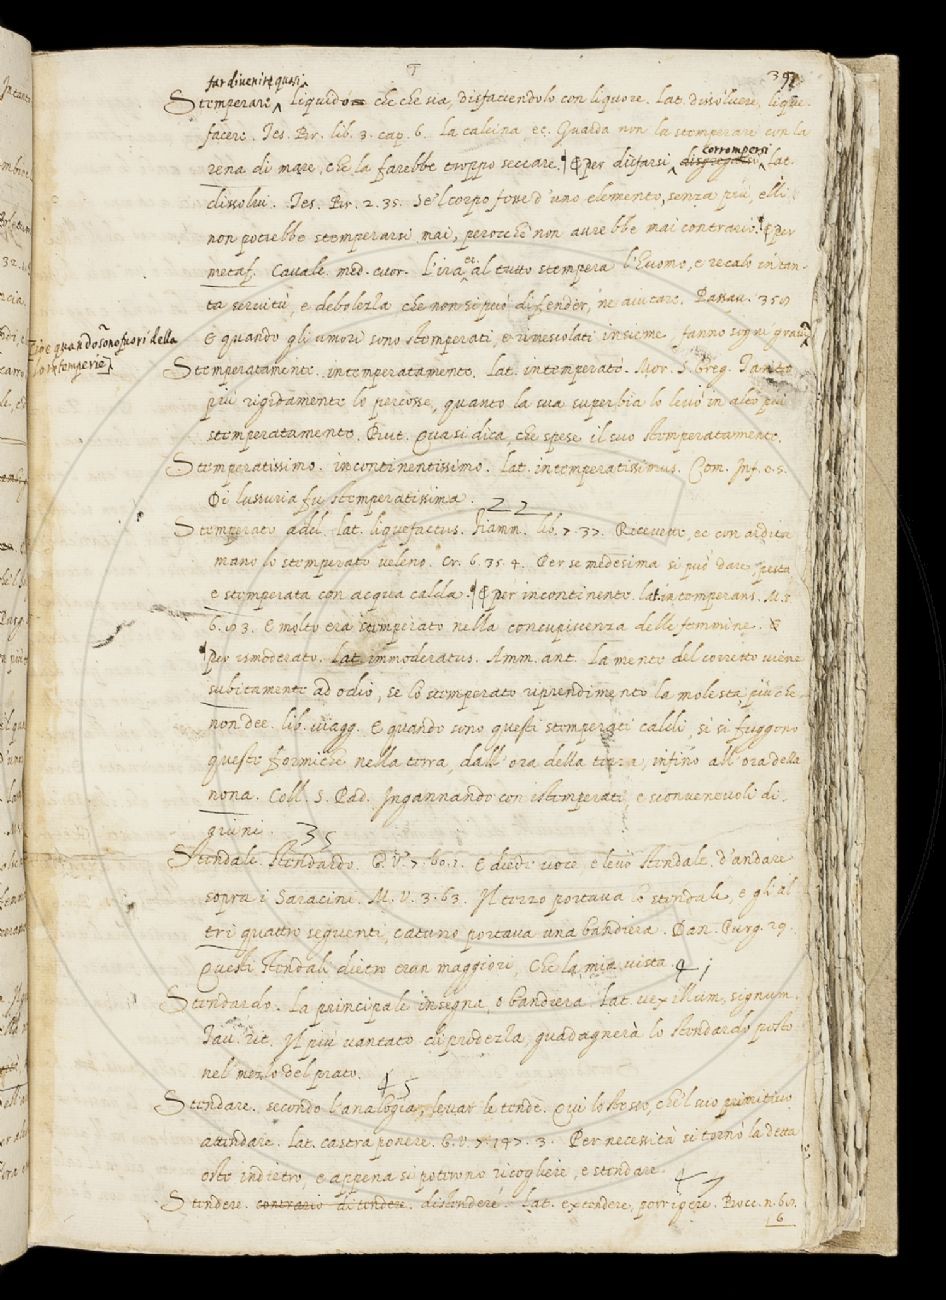 T
397
far divenire quasi
Stemperare liquido che che sia, disfaccendolo con liquore. Lat. dissolvere, lique-
facere. Tes. Br. lib. 3. cap. 6. La calcina ec. Guarda non la stemperare con la
rena di mare, che la farebbe troppo seccare. per disfarsi corrompersi lat.
dissolvi. Tes. Br. 2. 35. Se'l corpo fosse d'uno elemento, senza più, elli
non potrebbe stemperarsi mai, perocchè non avrebbe mai contrario. per
metaf. Cavalc. med. cuor. L'ira ec. al tutto stempera l'huomo, e recalo in tan-
ta servitù, e debolezza che non si può difender, ne aiutare. Passav. 350
E quando gli umori sono stemperati, e rimescolati insieme fanno sogni gravi
Cioè quando sono fuori della
loro temperie]
Stemperatamente. intemperatamente. Lat. intemperatè. Mor. S. Greg. Tanto
più rigidamente lo percosse, quanto la sua superbia lo levò in alto più
stemperatamente. But. Quasi dica, che spese il suo stemperatamente.
Stemperatissimo. incontinentissimo. lat. intemperatissimus. Com. Inf. c. 5.
Di lussuria fu stemperatissima.
22
Stemperato add. lat. liquefactus. Fiamm. lib. 7. 37. Ricevette, ec con ardita
mano lo stemperato veleno. Cr. 6. 35. 4. Per se medesima si può dare pesta
e stemperata con acqua calda. per incontinente. lat. intemperans. M. V.
6. 93. E molto era stemperato nella concupiscenza delle femmine.
per ismoderato. Lat. immoderatus. Amm. ant. La mente del corretto viene
subitamente ad odio, se lo stemperato riprendimento la molesta più che
non dee. lib. viagg. E quando sono questi stemperati caldi, si si fuggono
queste formiche nella terra, dall'ora della terza, infino all'ora della
nona. Coll. S. Pad. Ingannando con istemperati, e sconvenevoli di-
giuni.
35
Stendale. Stendardo. G. V. 7. 60. 1. E diedi voce, e levò stendale, d'andare
sopra i Saracini. M. V. 3. 63. Il terzo portava lo stendale, e gli al-
tri quattro seguenti, catuno portava una bandiera. Dan. Purg. 29.
Questi stendali dietro eran maggiori, Che la mia vista.
41
Stendardo. La principale insegna, o bandiera. Lat. vexillum, signum.
Tav. rit. Il più vantato di prodezza, guadagnerà lo stendardo posto
nel mezzo del prato.
45
Stendare. secondo l'analogia, levar le tende. Qui lo stesso, che'l suo primitivo
attendare. Lat. castra ponere. G. V. 7. 147. 3. Per necessità si tornò la detta
oste indietro, e appena si poterono ricogliere, e stendare.
47
Stendere. contrario di tendere. distendere. Lat. extendere, porrigere. Bocc. n. 60.
6